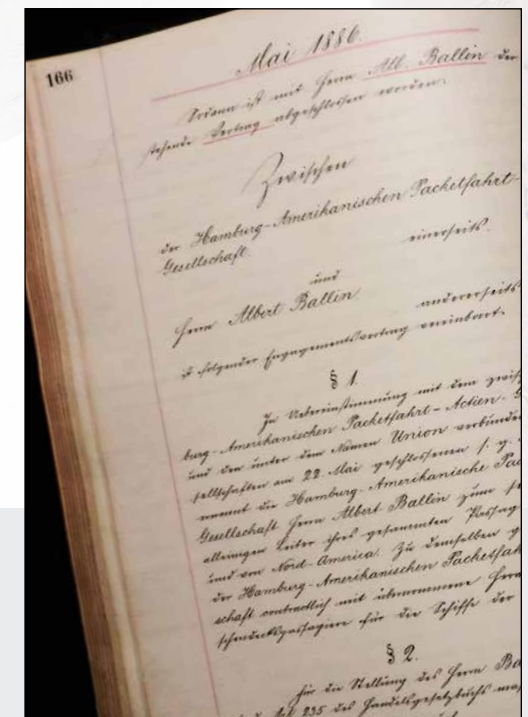 166
Mai 1886.
Sodann ist mit Herrn Alb. Ballin der
stehende Vertrag abgeschlossen worden:
Zwischen
der Hamburg-Amerikanischen Packetfahrt-
Gesellschaft
einerseits.
und
Herrn Albert Ballin
andererseits
ist folgender Engagementsvertrag vereinbart.
§ 1.
In Uebereinstimmung mit dem zwisch
burg-Amerikanischen Packetfahrt-Actien-G
und den unter dem Namen Union verbunde
sellschaften am 22. Mai geschlossenen s. g.
nennt die Hamburg-Amerikanische Pac
Gesellschaft Herrn Albert Ballin zum
alleinigen Leiter ihres gesammten Passag
und von Nord-America. Zu demselben
der Hamburg-Amerikanischen Packetfah
schaft contractlich mit übernommene Herr
schendeckspassagiere für die Schiffe der
§ 2.
Für die Stellung des Herrn Ba
235 des Handelsgesetzbuchs